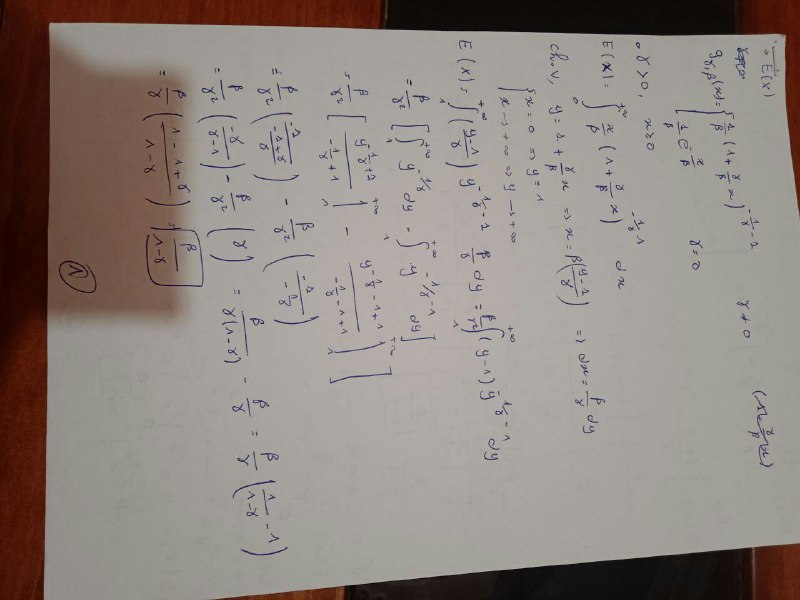 • E(X)
g_{γ,β}(x) = { 1/β (1 + γ/β x)^{-1/γ - 1}   γ ≠ 0
1/β e^{-x/β}   γ = 0
• γ > 0, x > 0
E(X) = ∫_0^{+∞} x/β (1 + γ/β x)^{-1/γ - 1} dx
ch. v, y = 1 + γ/β x ⇒ x = β(y-1/γ) ⇒ dx = β/γ dy
{ x = 0 ⇒ y = 1
x → +∞ ⇒ y → +∞
E(X) = ∫_1^{+∞} (y-1/γ) y^{-1/γ - 1} β/γ dy = β/γ² ∫_1^{+∞} (y-1) y^{-1/γ - 1} dy
= β/γ² [ ∫_1^{+∞} y^{-1/γ} dy - ∫_1^{+∞} y^{-1/γ - 1} dy ]
= β/γ² [ [ y^{-1/γ + 1} / -1/γ + 1 ]_1^{+∞} - [ y^{-1/γ - 1 + 1} / -1/γ - 1 + 1 ]_1^{+∞} ]
= β/γ² ( -1 / -1+γ/γ ) - β/γ² ( -1 / -1/γ )
= β/γ² ( -γ / γ-1 ) - β/γ² ( γ ) = β / γ(1-γ) - β/γ = β/γ ( 1 / 1-γ - 1 )
= β/γ ( 1 - 1 + γ / 1 - γ ) = β / 1-γ